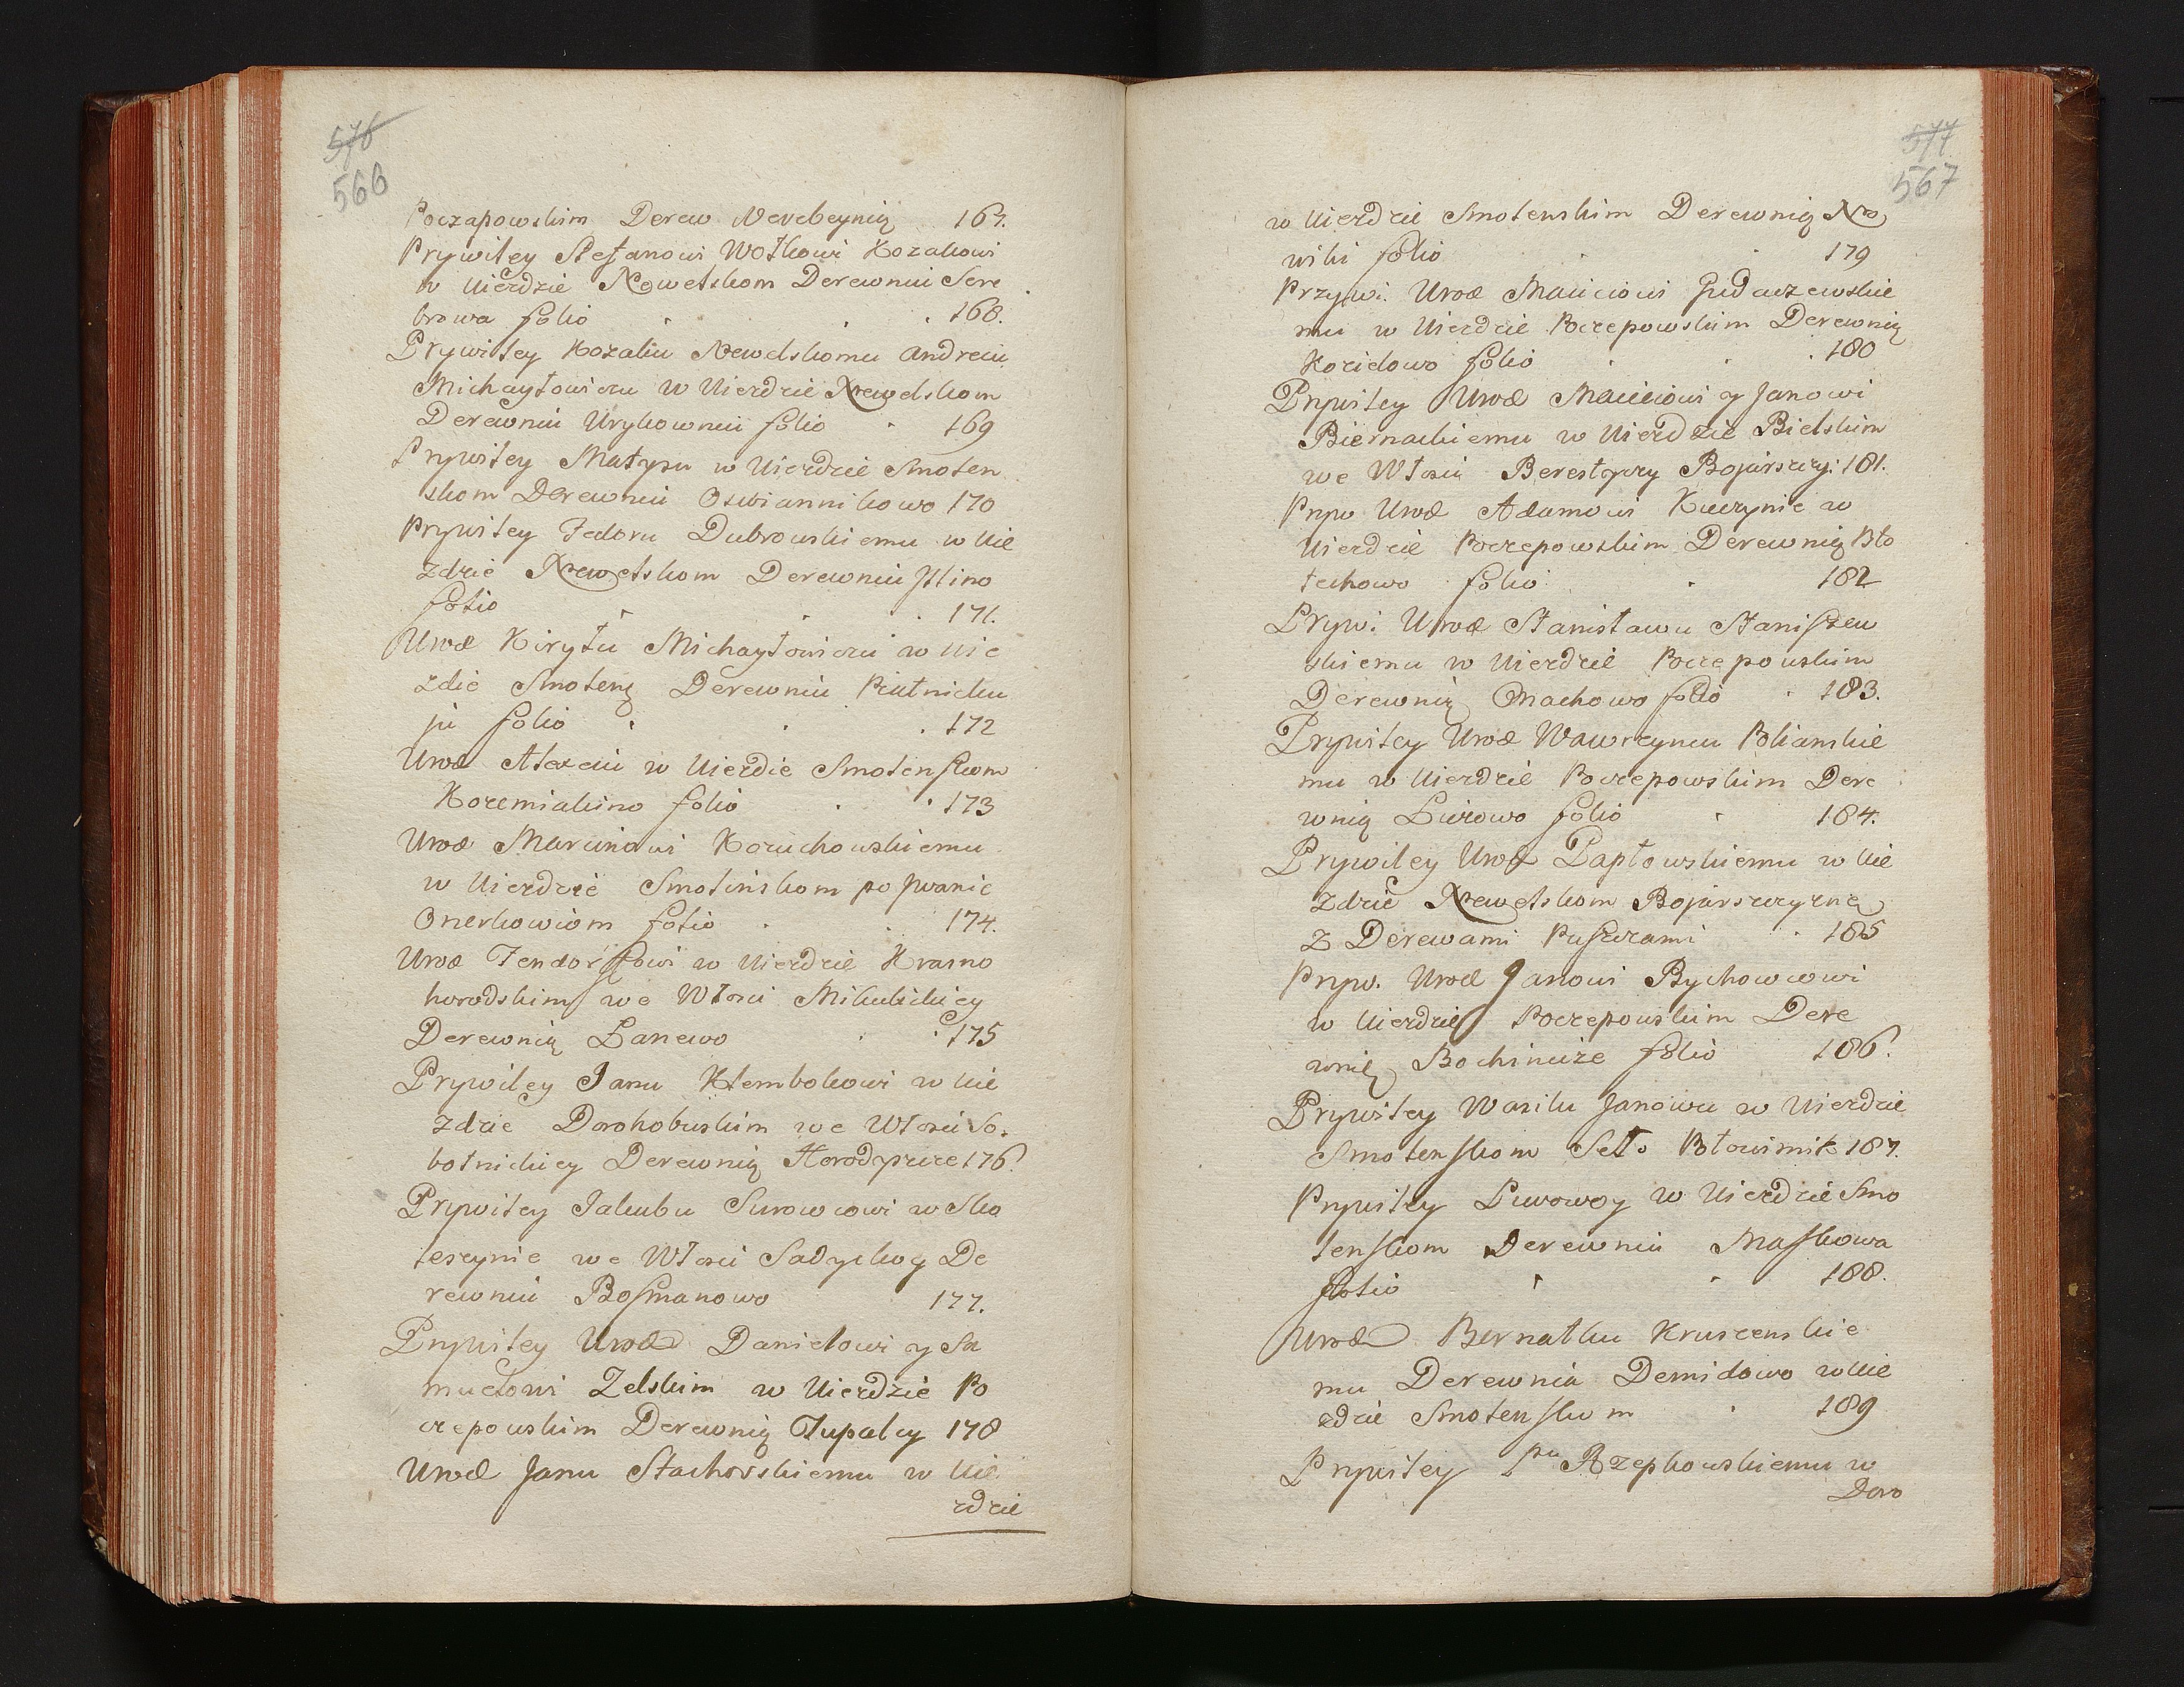 576
566
Poczapowskim Derew Nerebeynią 167.
Prywiley Stefanowi Wołkowi Kozakowi
w Uiezdzie Newelskom Derewniu Sere
browa folio 168.
Prywiley Kozaku Newelskomu Andreiu
Michayłowiczu w Uiezdzie Newelskom
Derewniu Urykowniu folio 169
Prywiley Matysu w Uiezdzie Smolen
skom Derewniu Oswiannikowo 170
Prywiley Fedoru Dubrowskiemu w Uie
zdzie Newelskom Derewniu Ilino
folio 171.
Urod Kiryłu Michayłowiczu w Uie
zdie Smoleną Derewniu Piatnicku
ju folio 172
Urod Alexeiu w Uiezdie Smolenskom
Kozemiakino folio 173
Urod Marcinowi Kozuchowskiemu
w Uiezdzie Smolinskom po Iwanie
Onerkowiom folio 174.
Urod Fendorssowi w Uiezdzie Krasno
horodskim we Włosci Mikulickiey
Derewnią Łanewo 175
Prywiley Janu Klembokowi w Uie
zdzie Dorohobuskim we Włosci So.
botnickiey Derewnią Horodyszcze 176.
Prywiley Jakubu Surowcowi w Smo
leszynie we Włosci Sadyckoy De
rewniu Bosmanowo 177.
Prywiley Urod Danielowi y Sa
muelowi Zelskim w Uiezdzie Po
czepowskim Derewnią Tupalcy 178
Urod Janu Stachorskiemu w Uie
zdzie
577
567
w Uiezdzie Smolenskim Derewnią No
wiki folio 179
Przywi. Urod Maciciowi Gudaczewskie
mu w Uiezdzie Poczepowskim Derewnią
Kozidowo folio 180
Prywiley Urod Maciciowi y Janowi
Biernackiemu w Uiezdzie Bielskim
we Włosci Berestyczy Bojarszczy: 181.
Pryw Urod Adamowi Kuczynie w
Uiezdzie Poczepowskim Derewnią Bło
techowo folio 182
Prywi: Urod Stanisławu Staniszew
skiemu w Uiezdzie Poczepowskim
Derewnią Omachowo folio 183.
Prywiley Urod Wawrzyncu Polianskie
mu w Uiezdzie Poczepowskim Dere
wnią Lurowo folio 184.
Prywiley Urod Papłowskiemu w Uie
zdzie Newelskom Bojarszczyzna
z Derewami Puszczami 185
Pryw. Urod Janowi Bychowcowi
w Uiezdzie Poczepowskim Dere
wnię Bochinicze folio 186.
Prywiley Wasilu Janowu w Uiezdzie
Smolenskom Sello Błowimik 187.
Prywiley Luwowoy w Uiezdzie Smo
lenskom Derewniu Maskowa
folio 188.
Urod Bernatku Kruszenskie
mu Derewnia Demidowo w Uie
zdzie Smolenskom 189
Prywiley Pu Rzepkowskiemu w
Doro